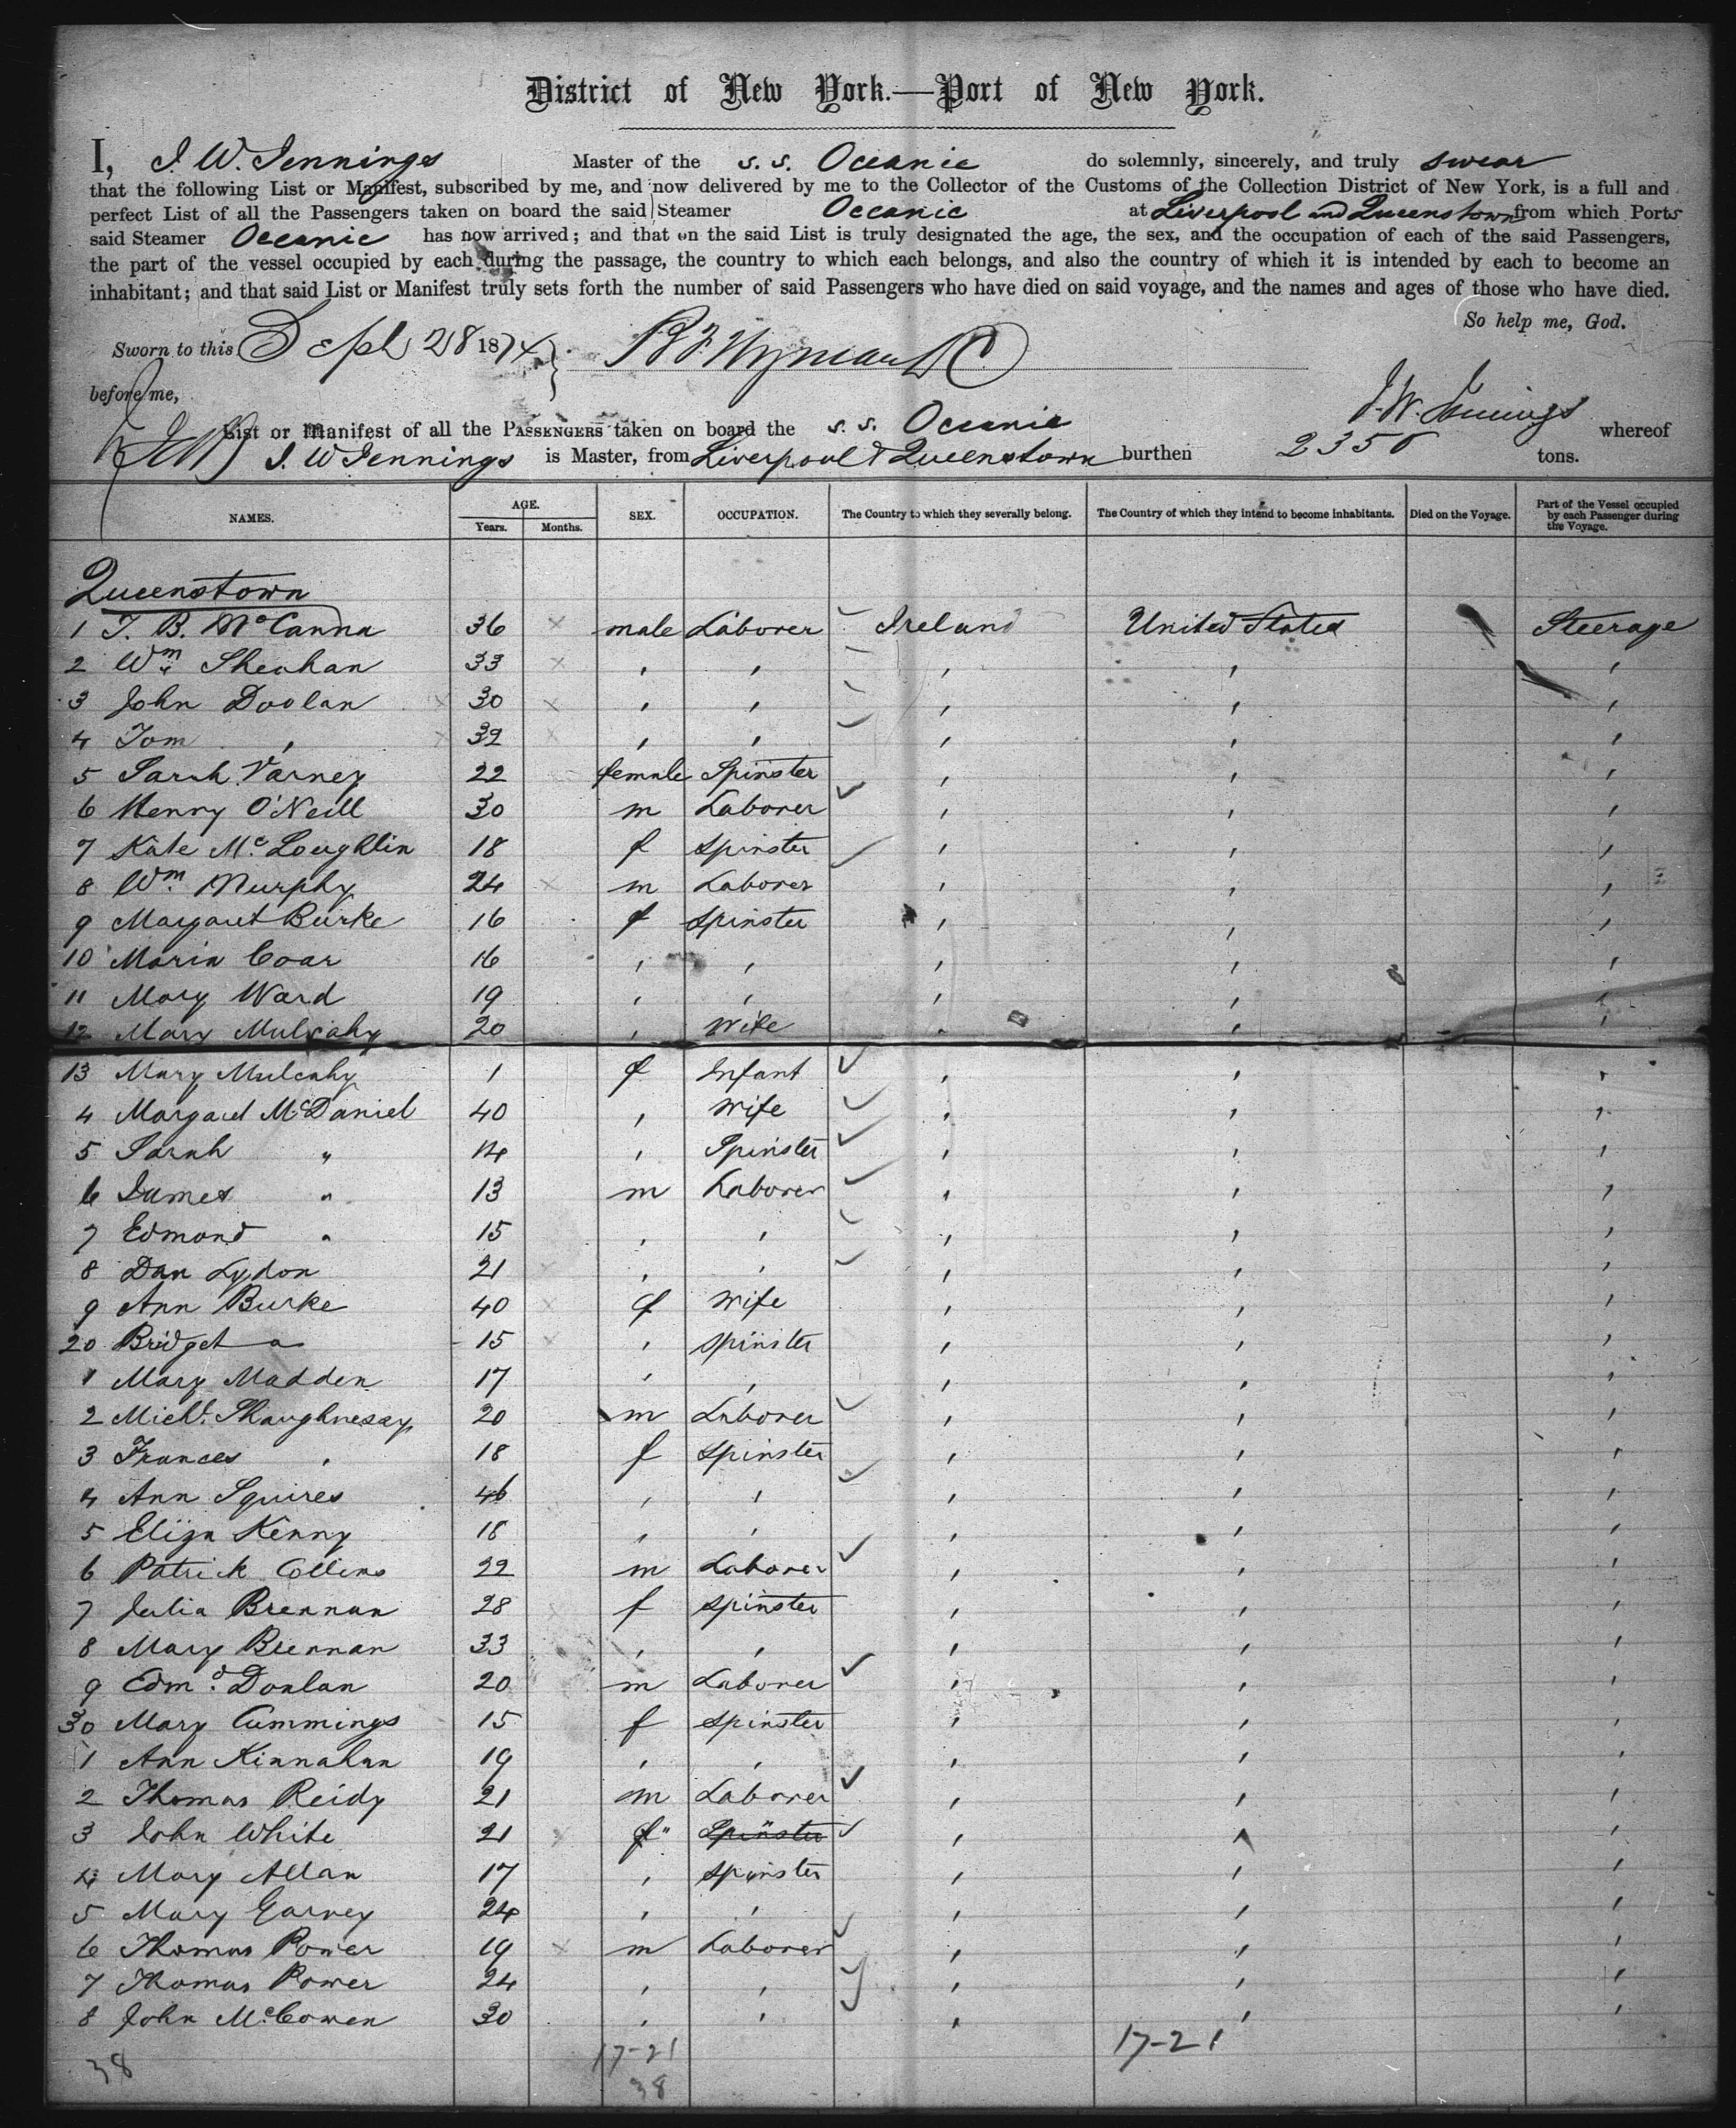 District of New York.—Port of New York.
I, J. W. Jennings Master of the s. s. Oceanic do solemnly, sincerely, and truly swear
that the following List or Manifest, subscribed by me, and now delivered by me to the Collector of the Customs of the Collection District of New York, is a full and
perfect List of all the Passengers taken on board the said Steamer Oceanic at Liverpool and Queenstown from which Ports
said Steamer Oceanic has now arrived; and that on the said List is truly designated the age, the sex, and the occupation of each of the said Passengers,
the part of the vessel occupied by each during the passage, the country to which each belongs, and also the country of which it is intended by each to become an
inhabitant; and that said List or Manifest truly sets forth the number of said Passengers who have died on said voyage, and the names and ages of those who have died.
So help me, God.
Sworn to this Sept 28 1874
before me,
J. W. Jennings
List or Manifest of all the PASSENGERS taken on board the s. s. Oceanic whereof
J. W Jennings is Master, from Liverpool & Queenstown burthen 2350 tons.
NAMES. AGE. Years. Months. SEX. OCCUPATION. The Country to which they severally belong. The Country of which they intend to become inhabitants. Died on the Voyage. Part of the Vessel occupied by each Passenger during the Voyage.
Queenstown
1 T. B. McCanna 36 male Laborer Ireland United States Steerage
2 Wm Sheahan 33 , , , , ,
3 John Doolan 30 , , , , ,
4 Tom , 32 , , , , ,
5 Sarah Varney 22 female Spinster , , ,
6 Henry O'Neill 30 m Laborer , , ,
7 Kate Mc Loughlin 18 f spinster , , ,
8 Wm. Murphy 24 m Laborer , , ,
9 Margaret Burke 16 f spinster , , ,
10 Maria Coar 16 , , , , ,
11 Mary Ward 19 , , , , ,
12 Mary Mulcahy 20 , Wife , , ,
13 Mary Mulcahy 1 f Infant , , ,
4 Margaret McDaniel 40 , Wife , , ,
5 Sarah " 14 , Spinster , , ,
6 James " 13 m Laborer , , ,
7 Edmond " 15 , , , , ,
8 Dan Lydon 21 , , , , ,
9 Ann Burke 40 f Wife , , ,
20 Bridget " 15 , spinster , , ,
1 Mary Madden 17 , , , , ,
2 Michl. Shaughnessy 20 m Laborer , , ,
3 Frances , 18 f spinster , , ,
4 Ann Squires 46 , , , , ,
5 Eliza Kenny 18 , , , , ,
6 Patrick Collins 22 m Laborer , , ,
7 Julia Brennan 28 f spinster , , ,
8 Mary Brennan 33 , , , , ,
9 Edmd. Donlan 20 m Laborer , , ,
30 Mary Cummings 15 f spinster , , ,
1 Ann Kinnahan 19 , , , , ,
2 Thomas Reidy 21 m Laborer , , ,
3 John White 21 f" Spinster , , ,
4 Mary Allan 17 , spinster , , ,
5 Mary Garvey 24 , , , , ,
6 Thomas Power 19 m Laborer , , ,
7 Thomas Power 24 , , , , ,
8 John McCowen 30 , , , , ,
17-21 17-21
38 38